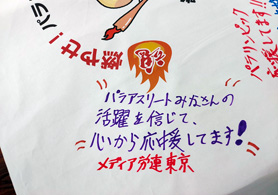 パラ
燃やせ!
魂
パラリンピック
応援してます!!
パラアスリートみなさんの
活躍を信じて、
心から応援してます!
メディア労連東京